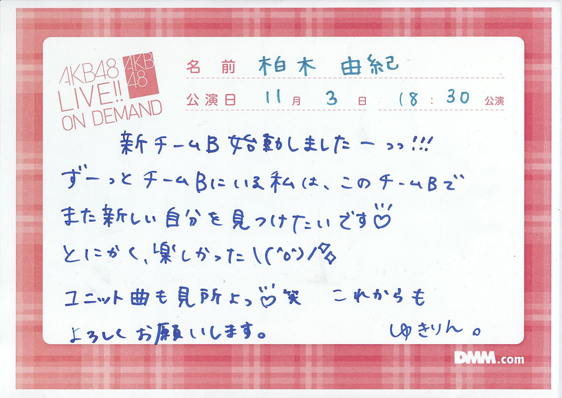 AKB48
LIVE!!
ON DEMAND
AKB
48
名前 柏木 由紀
公演日 11月 3日 18:30公演
新チームB始動しましたーっっ!!!
ずーっとチームBにいる私は、このチームBで
また新しい自分を見つけたいです♡
とにかく、楽しかった\(^o^)/
ユニット曲も見所よっ♡笑 これからも
よろしくお願いします。 ゆきりん。
DMM.com